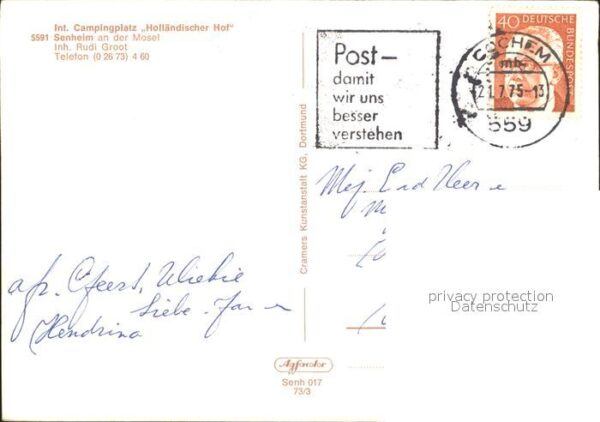 Int. Campingplatz „Holländischer Hof"
5591 Senheim an der Mosel
Inh. Rudi Groot
Telefon (0 26 73) 4 60
Post–
damit
wir uns
besser
verstehen
COCHEM
mb
21.7.75-13
559
40 DEUTSCHE
BUNDESPOST
Cramers Kunstanstalt KG, Dortmund
Mej. en Heer
afz. Geert, Wiebie
Siebe Jan
Hendrina
privacy protection
Datenschutz
Agfacolor
Senh 017
73/3